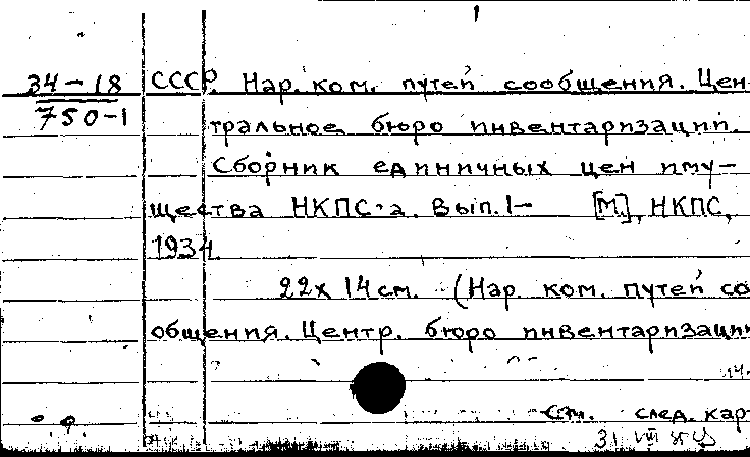 34-18 СССР. Нар. ком. путей сообщения. Цен-
750-1 тральное бюро инвентаризации.
Сборник единичных цен иму-
щества НКПС-а. Вып. 1- [М.], НКПС,
1934.
22х14 см. (Нар. ком. путей со-
общения. Центр. бюро инвентаризации
См. след. кар